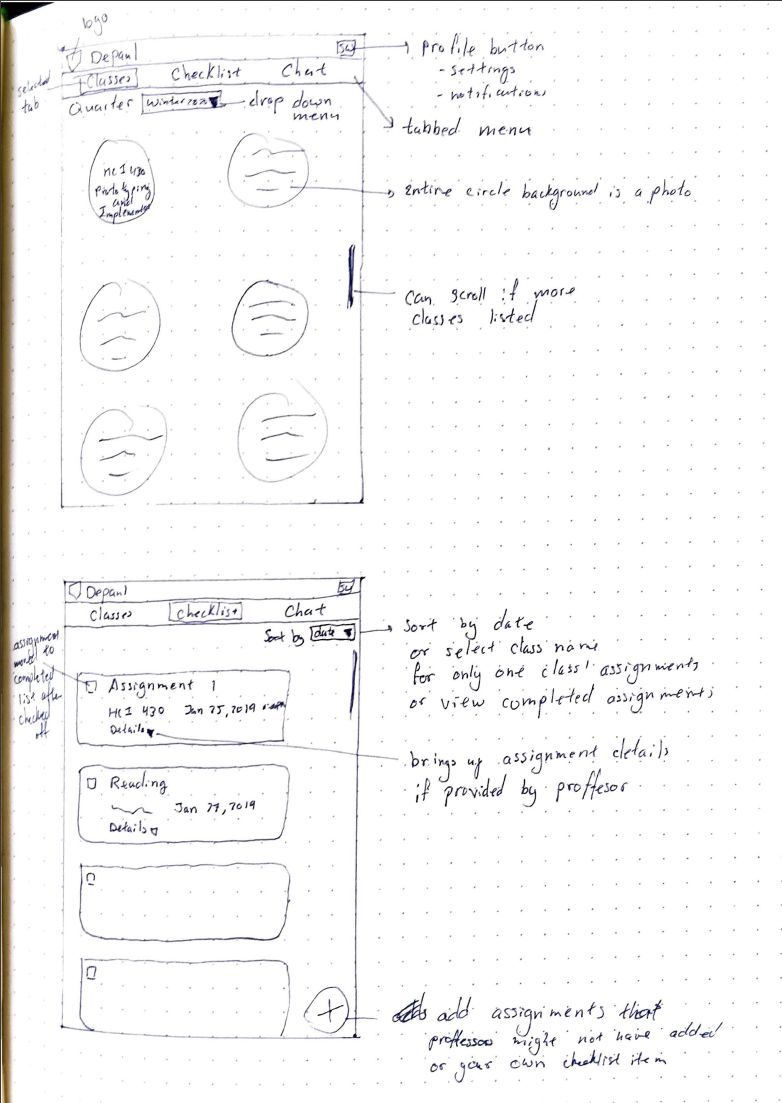 logo
Depaul
SW
Profile button
- settings
- notifications
selected
tab
Classes
Checklist
Chat
Quarter
drop down
menu
tabbed menu
HCI 430
Prototyping
and
Entire circle background is a photo
Can scroll if more
classes listed
Depaul
SW
Classes
Checklist
Chat
Sort by date
Sort by date
or select class name
for only one class' assignments
or view completed assignments
assignment
completed
list after
checked
off
Assignment 1
HCI 430 Jan 25, 2019
Details
brings up assignment details
if provided by proffesor
Reading
Jan 27, 2019
Details
+
add assignments that
proffessor might not have added
or your own checklist item